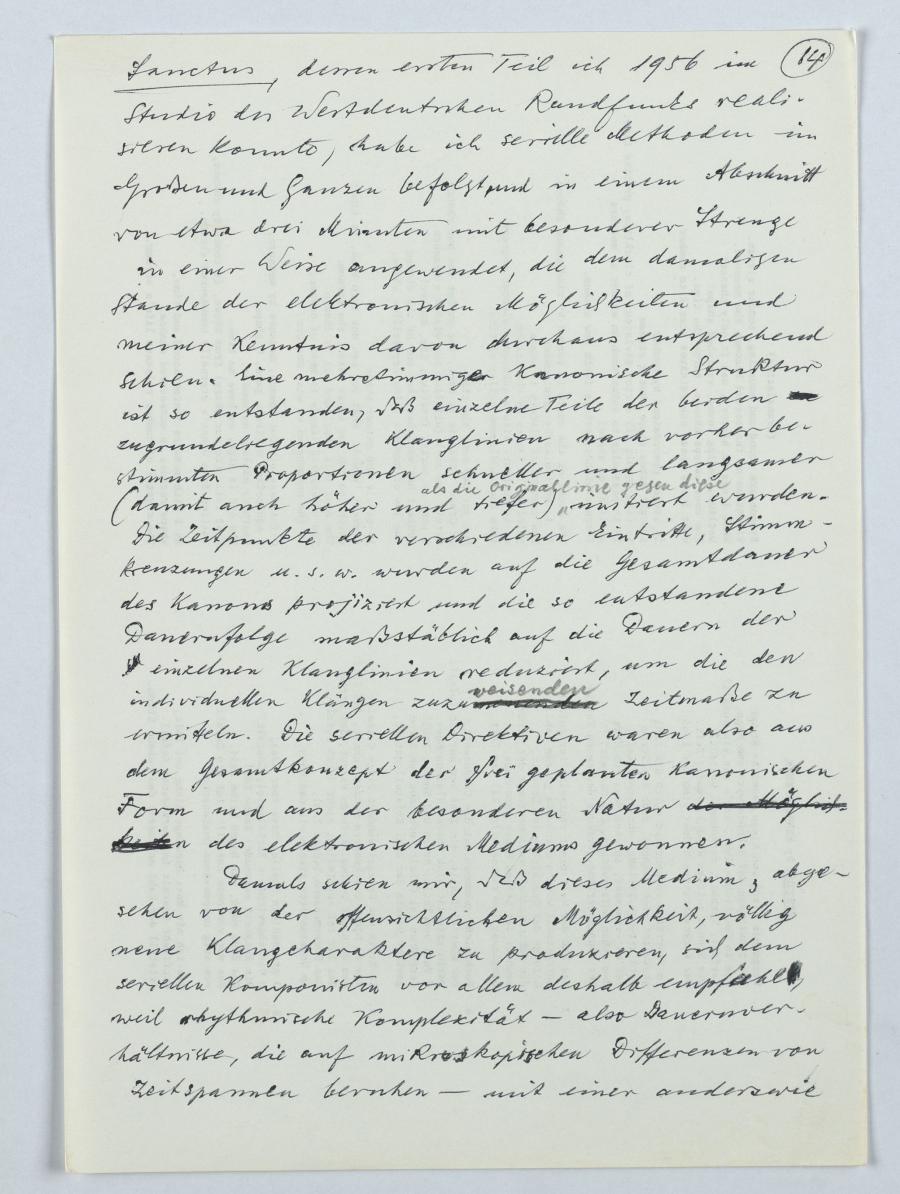 Sanctus, deren ersten Teil ich 1956 im 14
Studio des Westdeutschen Rundfunks reali-
sieren konnte, habe ich serielle Methoden im
Großen und Ganzen befolgt und in einem Abschnitt
von etwa drei Minuten mit besonderer Strenge
in einer Weise angewendet, die dem damaligen
Stande der elektronischen Möglichkeiten und
meiner Kenntnis davon durchaus entsprechend
schien. Eine mehrstimmige Kanonische Struktur
ist so entstanden, daß einzelne Teile der beiden
zugrundeliegenden Klanglinien nach vorher be-
stimmten Proportionen schneller und langsamer
als die Originallinie gegen diese
(damit auch höher und tiefer) wurden.
Die Zeitpunkte der verschiedenen Eintritte, Stimm-
kreuzungen u. s. w. wurden auf die Gesamtdauer
des Kanons projiziert und die so entstandene
Dauernfolge maßstäblich auf die Dauern der
einzelnen Klanglinien reduziert, um die den
weisenden
individuellen Klängen zuzu Zeitmaße zu
ermitteln. Die seriellen Direktiven waren also aus
dem Gesamtkonzept der frei geplanten Kanonischen
Form und aus der besonderen Natur der Möglich-
keiten des elektronischen Mediums gewonnen.
Damals schien mir, daß dieses Medium, abge-
sehen von der offensichtlichen Möglichkeit, völlig
neue Klangcharaktere zu produzieren, sich dem
seriellen Komponisten vor allem deshalb empfehle,
weil rhythmische Komplexität – also Dauernver-
hältnisse, die auf mikroskopischen Differenzen von
Zeitspannen beruhen – mit einer anderswie